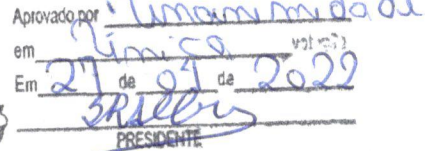 Aprovado por Unanimidade
em Única
Em 27 de 01 de 2022
PRESIDENTE